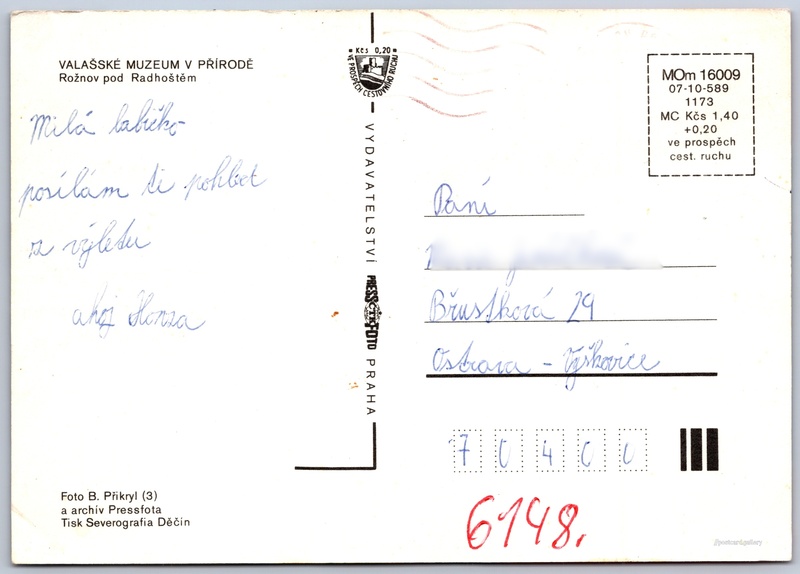 VALAŠSKÉ MUZEUM V PŘÍRODĚ
Rožnov pod Radhoštěm
Milá babičko
posílám ti pohled
z výletu
ahoj Honza
Foto B. Přikryl (3)
a archív Pressfota
Tisk Severografia Děčín
Kčs 0,20
VE PROSPĚCH CESTOVNÍHO RUCHU
VYDAVATELSTVÍ PRESSFOTO PRAHA
ČTK
MOm 16009
07-10-589
1173
MC Kčs 1,40
+0,20
ve prospěch
cest. ruchu
Paní
Břustková 29
Ostrava - Výškovice
70400
6148.
@postcard.gallery